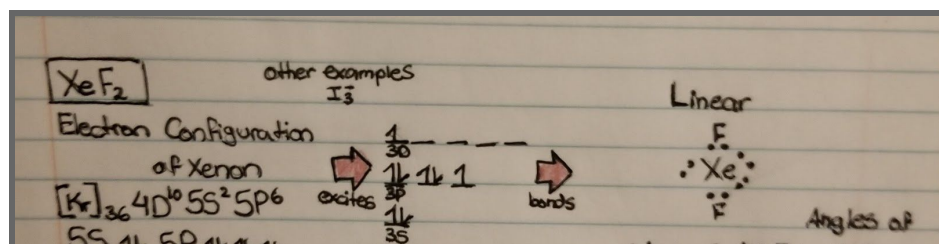 XeF₂
other examples
I₃⁻
Linear
Electron Configuration
of Xenon
[Kr]₃₆ 4D¹⁰ 5S² 5P⁶
excites
1
3D
1l 1l 1
3P
1l
3S
bonds
F
Xe
F
Angles of
5S 1l 5P